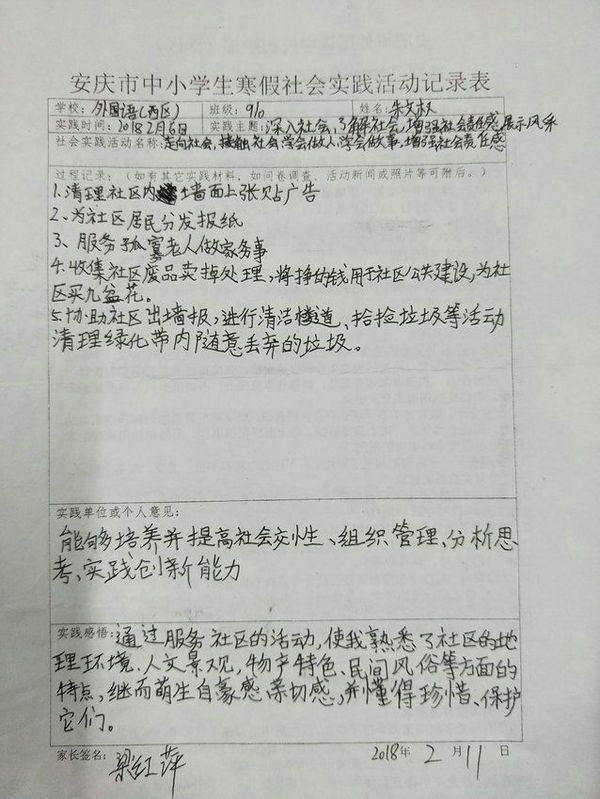 安庆市中小学生寒假社会实践活动记录表
学校: 外国语(西区) 班级: 910 姓名: 朱文权
实践时间: 2018 2月6日 实践主题: 深入社会,了解社会,增强社会责任感,展示风采
社会实践活动名称: 走向社会,接触社会,学会做人,学会做事,增强社会责任感
过程记录:(如有其它实践材料,如问卷调查、活动新闻或照片等可附后。)
1.清理社区内墙面上张贴广告
2、为社区居民分发报纸
3、服务孤寡老人做家务事
4.收集社区废品卖掉处理,将挣的钱用于社区公共建设,为社
区买九盆花。
5.协助社区出墙报,进行清洁楼道、拾捡垃圾等活动
清理绿化带内随意丢弃的垃圾。
实践单位或个人意见:
能够培养并提高社会交性、组织管理、分析思
考、实践创新能力
实践感悟:通过服务社区的活动,使我熟悉了社区的地
理环境、人文景观,物产特色、民间风俗等方面的
特点,继而萌生自豪感、亲切感,并懂得珍惜、保护
它们。
家长签名: 梁红萍 2018年 2 月 11 日